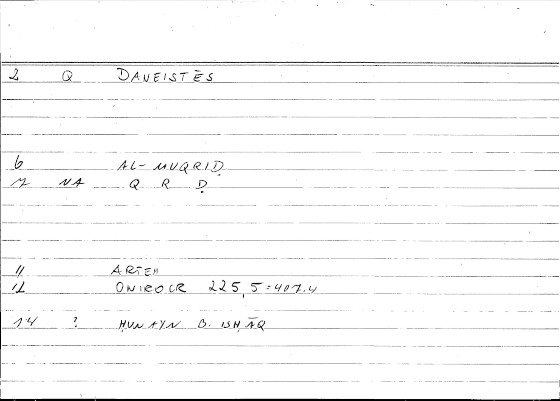 2 Q DANEISTĒS
6 AL-MUQRIḌ
7 NA Q R Ḍ
11 ARTEM
12 ONIROCR 225,5=407,4
14 ? ḤUNAYN B. ISḤĀQ